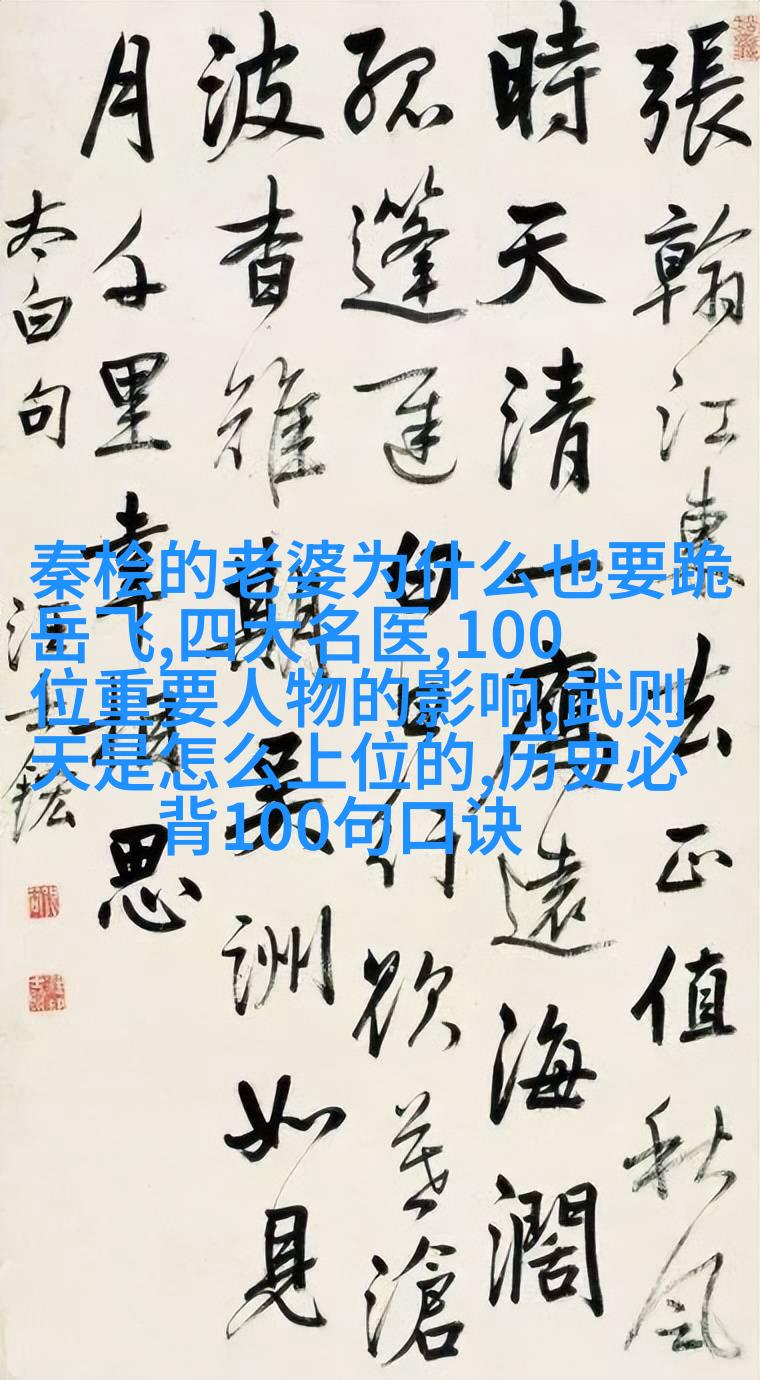 張翰江東去正值秋風
時天清一鴈遠海濶
孤蓬遲白日行欲暮滄
波杳難期吳洲如見
月千里幸相思
太白句
汪士鋐
秦桧的老婆为什么也要跪
岳飞,四大名医,100
位重要人物的影响,武则
天是怎么上位的,历史必
背100句口诀